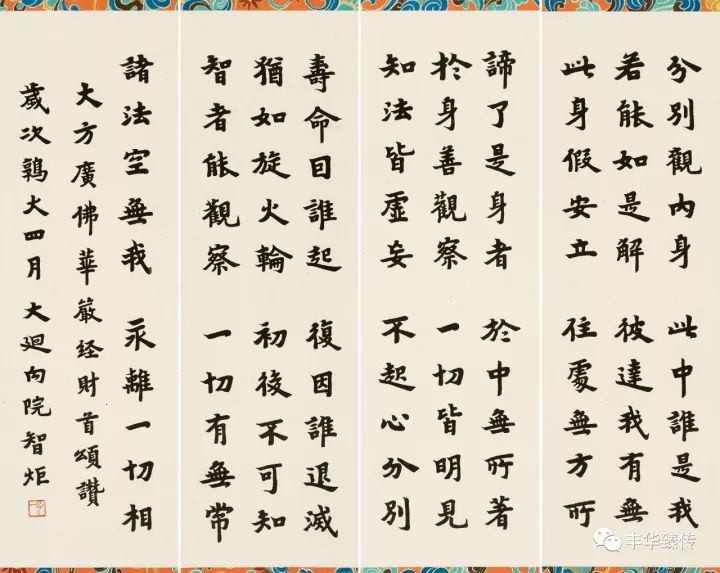 分別觀內身 此中誰是我
若能如是解 彼達我有無
此身假安立 住處無方所
諦了是身者 於中無所著
於身善觀察 一切皆明見
知法皆虛妄 不起心分別
壽命因誰起 復因誰退滅
猶如旋火輪 初後不可知
智者能觀察 一切有無常
諸法空無我 永離一切相
大方廣佛華嚴经財首頌讚
歲次鶉火四月 大迴向院智炬
丰华臻传